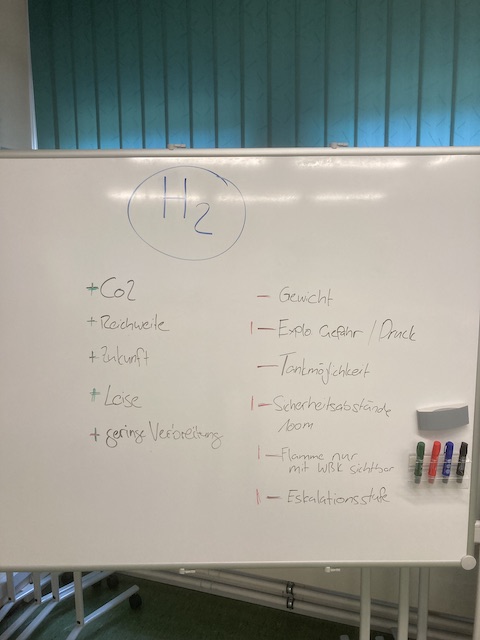 H2
+ Co2
+ Reichweite
+ Zukunft
+ Leise
+ geringe Verbreitung
- Gewicht
|- Explo Gefahr / Druck
- Tankmöglichkeit
|- Sicherheitsabstände
100m
|- Flamme nur
mit WBK sichtbar
|- Eskalationsstufe